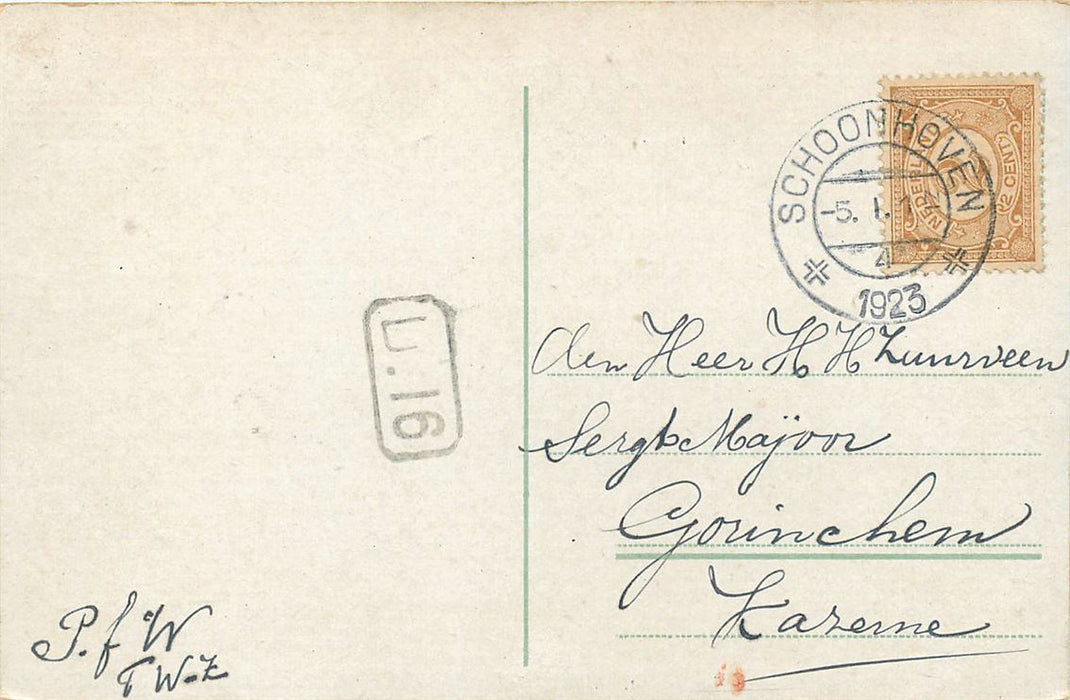 SCHOONHOVEN
-5. 1. 1
4
1923
NEDERL
½ CENT
L.16
den Heer H H Zuurveen
Sergt Majoor
Gorinchem
Kazerne
P. f W
T W-Z